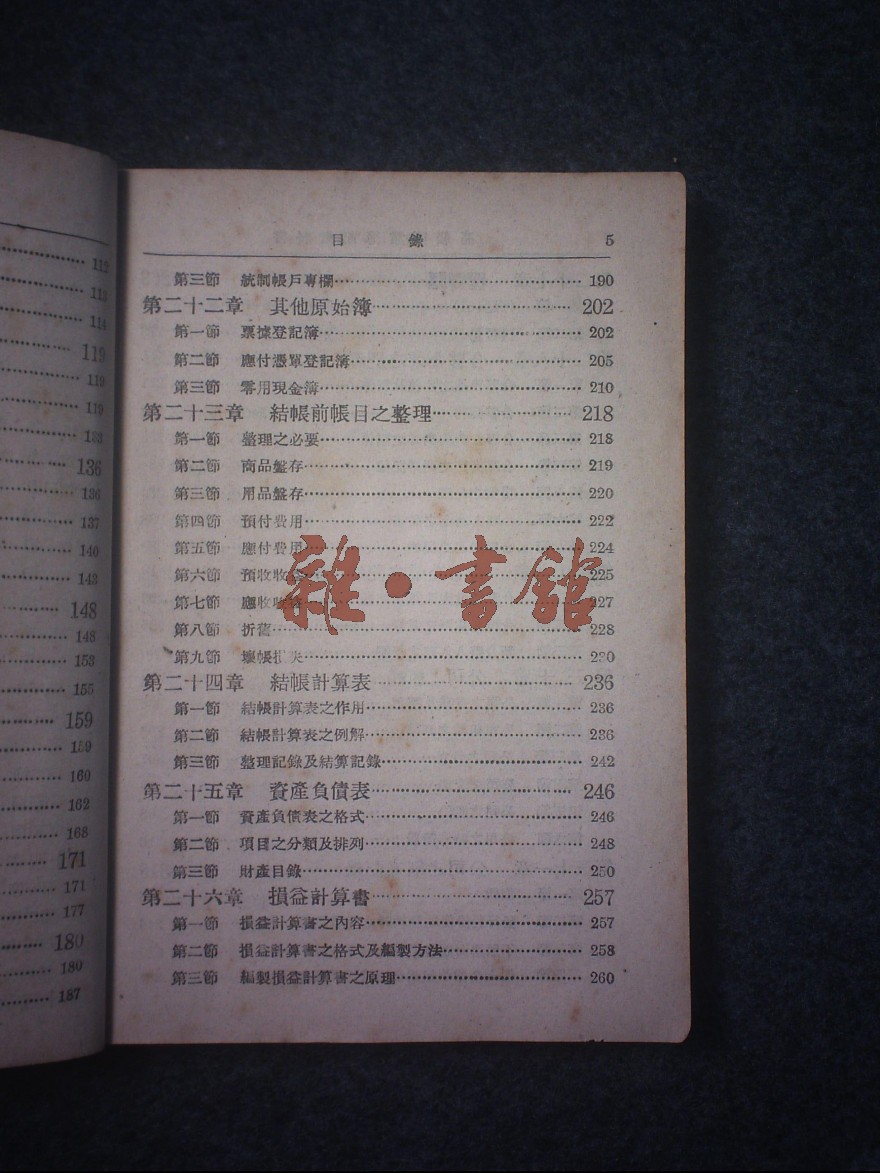 112
113
114
119
119
119
133
136
136
137
140
143
148
148
153
155
159
159
160
162
168
171
171
177
180
180
187
目 錄 5
第三節 統制帳戶專欄 190
第二十二章 其他原始簿 202
第一節 票據登記簿 202
第二節 應付憑單登記簿 205
第三節 零用現金簿 210
第二十三章 結帳前帳目之整理 218
第一節 整理之必要 218
第二節 商品盤存 219
第三節 用品盤存 220
第四節 預付費用 222
第五節 應付費用 224
第六節 預收收 225
第七節 應收收 227
第八節 折舊 228
第九節 壞帳損失 230
第二十四章 結帳計算表 236
第一節 結帳計算表之作用 236
第二節 結帳計算表之例解 236
第三節 整理記錄及結算記錄 242
第二十五章 資產負債表 246
第一節 資產負債表之格式 246
第二節 項目之分類及排列 248
第三節 財產目錄 250
第二十六章 損益計算書 257
第一節 損益計算書之內容 257
第二節 損益計算書之格式及編製方法 258
第三節 編製損益計算書之原理 260
雜·書館